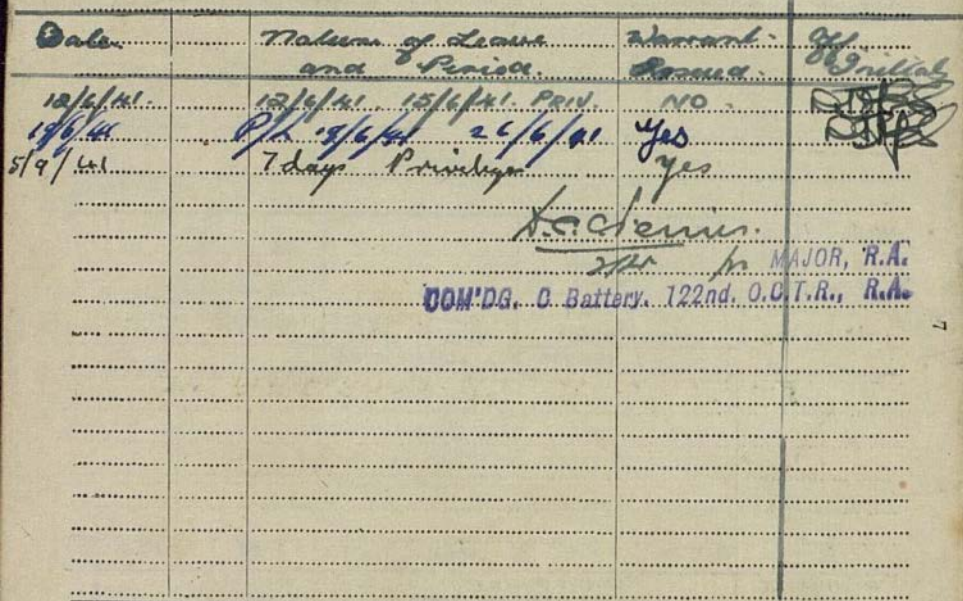 Date. Nature of Leave Warrant Off
and Period. Issued. Initial
12/6/41. 12/6/41. 15/6/41. PRIV. NO.
P/L 18/6/41 26/6/41 Yes
5/9/41 7 days Privilege yes
2/Lt for MAJOR, R.A.
COM'DG. C Battery. 122nd. O.C.T.R., R.A.
7